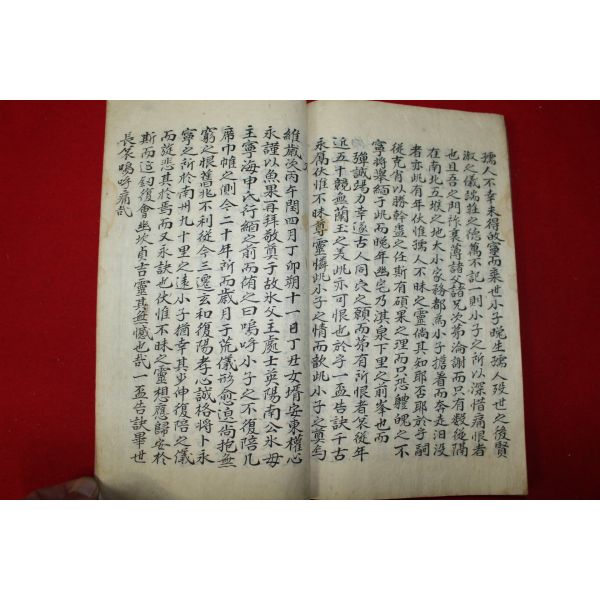 孺人不幸未得故靈而棄世小子晚生孺人歿世之後賢
淑之儀端莊之德萬不記一則小子之所以深惜痛恨者
也且吾之門祚衰薄諸父諸兄次第淪謝而只有數從隔
在南北五堠之地大小家務都爲小子擔着而奔走汨沒
者亦此有年伏惟孺人不昧之靈倘其知耶否耶於予嗣
從克肖以勝幹蠱之任斯有碩果之理而只恐體魄之不
寧將舉緬于此而晚年幽宅乃淇泉下里之前峯也而
殫誠竭力幸遂古人同穴之願而第有所恨者筴從年
近五十競無蘭玉之美此亦可恨也於乎一盃告訣千古
永隔伏惟不昧尊靈憐此小子之情而歆此小子之奠勾
維歲次丙午閏四月丁卯朔十一日丁丑女壻安東權心
永謹以魚果再拜敬奠于故氷父王處士英陽南公氷母
主寧海申氏行緬之前而侑之曰嗚呼小子之不復陪几
席巾帨之側今二十年所而歲月于荒儀形愈邈尚抱無
窮之根舊兆不利從今三遷玄和復陽孝心誠格將卜永
寧之所於南州九十里之遠小子猶幸其更伸復陪之儀
而旋悲其於焉而又永訣也伏惟不昧之靈想應歸安於
斯而這釖復會幽坎貞吉靈其無憾也哉一盃告訣畢世
長筴嗚呼痛哉